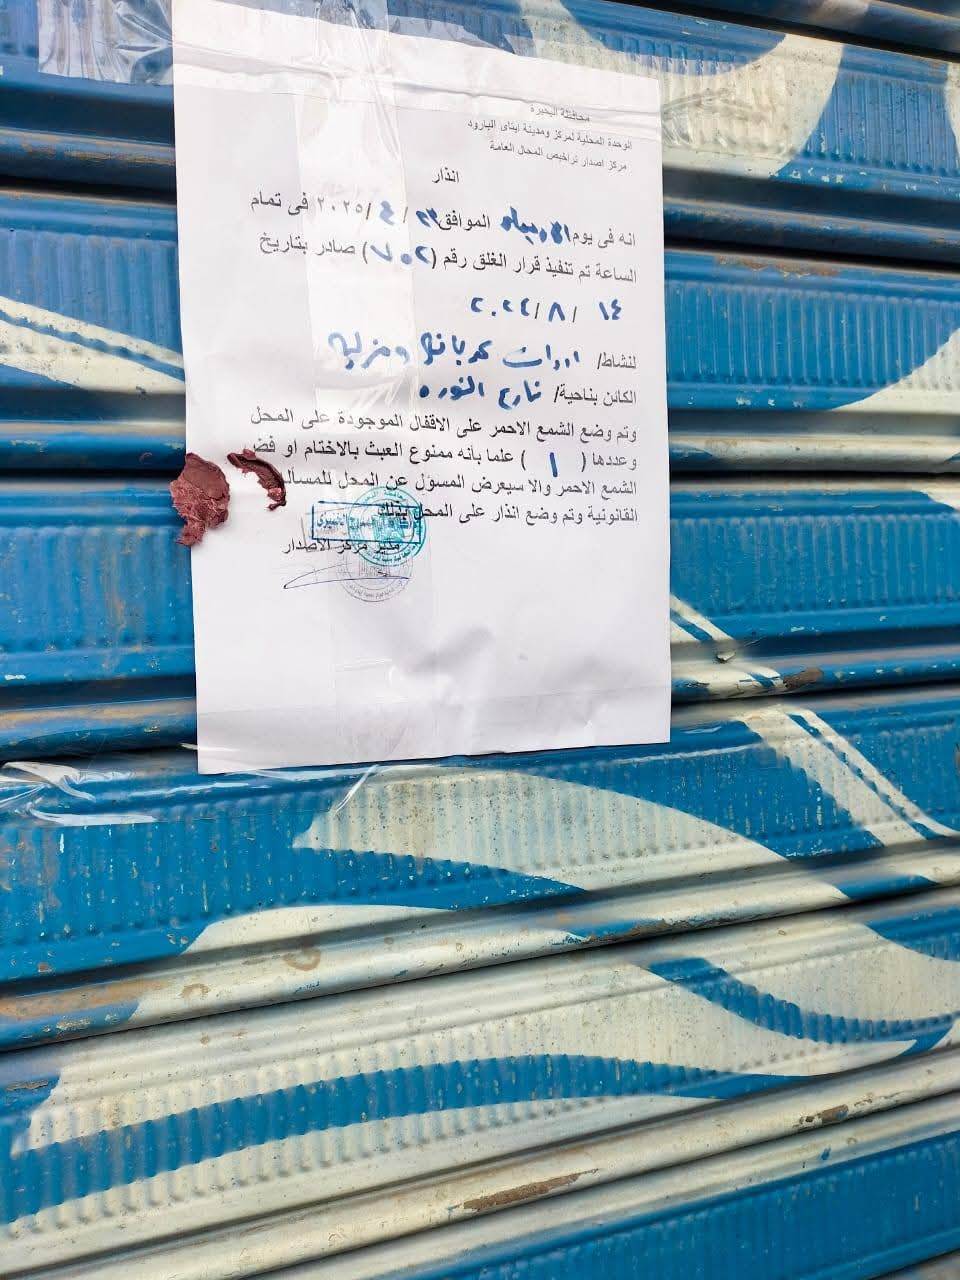 محافظة البحيرة
الوحدة المحلية لمركز ومدينة ايتاى البارود
مركز اصدار تراخيص المحال العامة
انذار
انه فى يوم الاربعاء الموافق ٢٣ / ٤ / ٢٠٢٥ فى تمام
الساعة تم تنفيذ قرار الغلق رقم (٧٠٢) صادر بتاريخ
١٤ / ٨ / ٢٠٢٤
لنشاط/ ادوات كهربائية ومنزلية
الكائن بناحية/ شارع الثورة
وتم وضع الشمع الاحمر على الاقفال الموجودة على المحل
وعددها ( ١ ) علما بأنه ممنوع العبث بالاختام او فض
الشمع الاحمر والا سيعرض المسؤل عن المحل للمسائلة
القانونية وتم وضع انذار على المحل بذلك
مدير مركز الاصدار